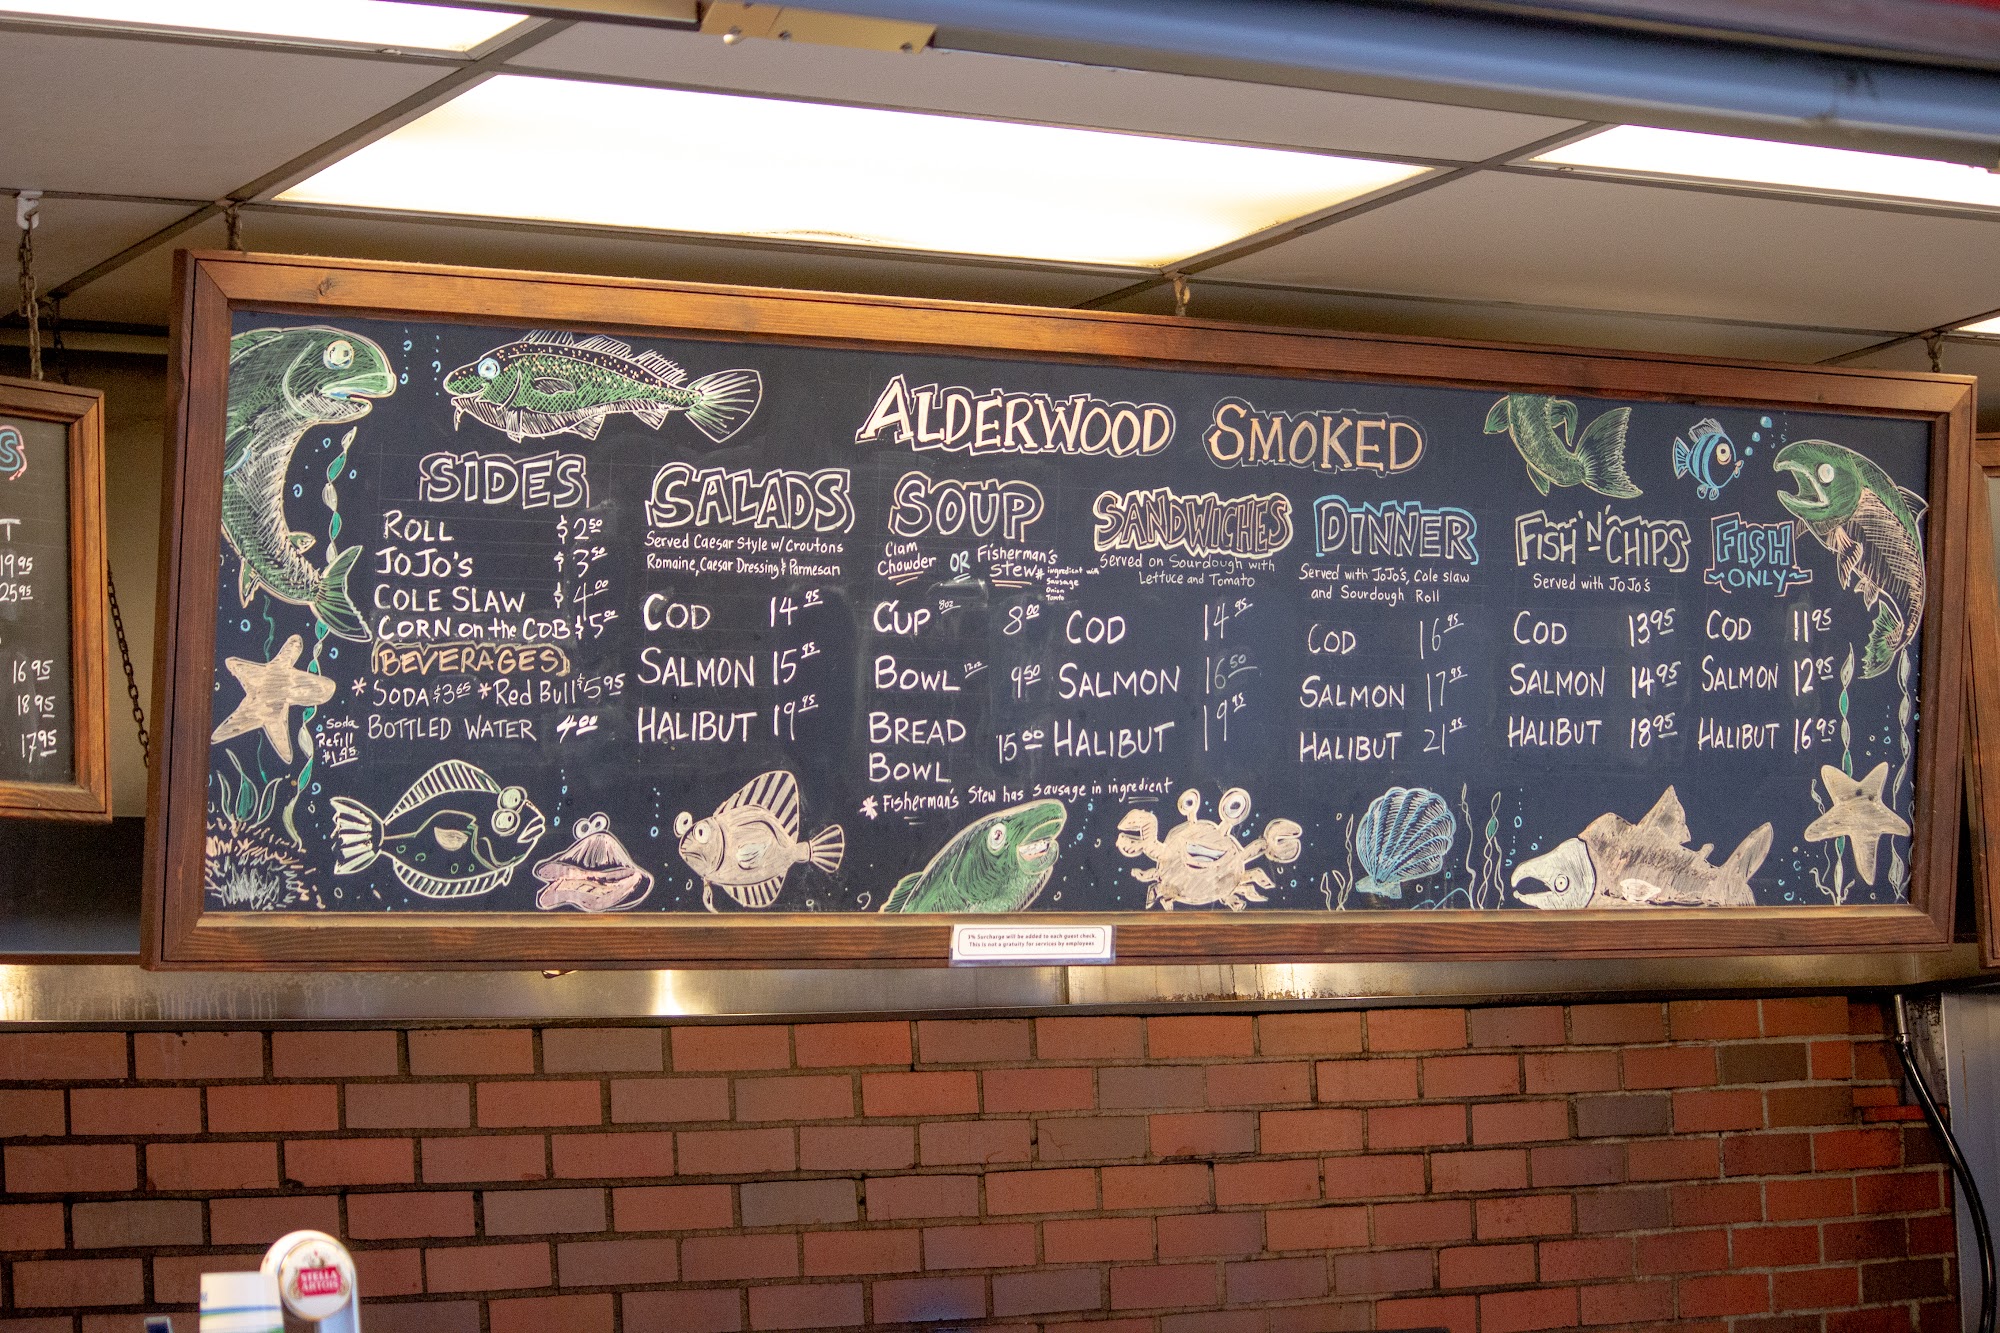 S
T
19.95
25.95
16.95
18.95
17.95
ALDERWOOD SMOKED
SIDES
ROLL $2.50
JOJO'S $3.50
COLE SLAW $4.00
CORN on the COB $5.00
BEVERAGES
*SODA $3.65 *Red Bull $5.95
BOTTLED WATER 4.00
*Soda
Refill
$1.95
SALADS
Served Caesar Style w/ Croutons
Romaine, Caesar Dressing & Parmesan
COD 14.95
SALMON 15.95
HALIBUT 19.95
SOUP
Clam
Chowder OR Fisherman's
Stew*
ingredient
Sausage
Onion
Tomato
CUP 8oz 8.00
BOWL 12oz 9.50
BREAD
BOWL 15.00
* Fisherman's Stew has sausage in ingredient
SANDWICHES
Served on Sourdough with
Lettuce and Tomato
COD 14.95
SALMON 16.50
HALIBUT 19.95
DINNER
Served with JoJo's, Cole Slaw
and Sourdough Roll
COD 16.95
SALMON 17.95
HALIBUT 21.95
FISH 'N' CHIPS
Served with JoJo's
COD 13.95
SALMON 14.95
HALIBUT 18.95
FISH
ONLY
COD 11.95
SALMON 12.95
HALIBUT 16.95
3% Surcharge will be added to each guest check.
This is not a gratuity for services by employees
STELLA
ARTOIS